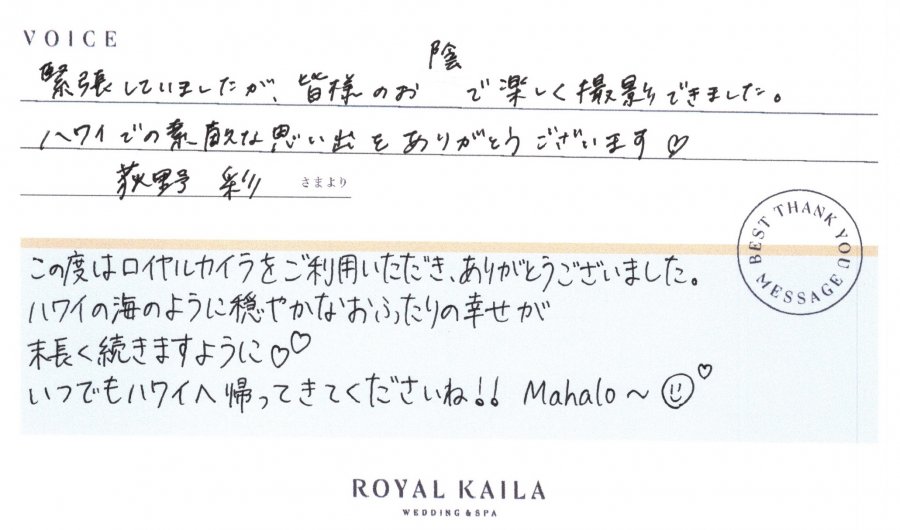 VOICE
緊張していましたが、皆様のお陰で楽しく撮影できました。
ハワイでの素敵な思い出をありがとうございます♡
荻野 彩 さまより
BEST THANK YOU MESSAGE
この度はロイヤルカイラをご利用いただき、ありがとうございました。
ハワイの海のように穏やかなおふたりの幸せが
末長く続きますように♡♡
いつでもハワイへ帰ってきてくださいね!! Mahalo～
ROYAL KAILA
WEDDING & SPA